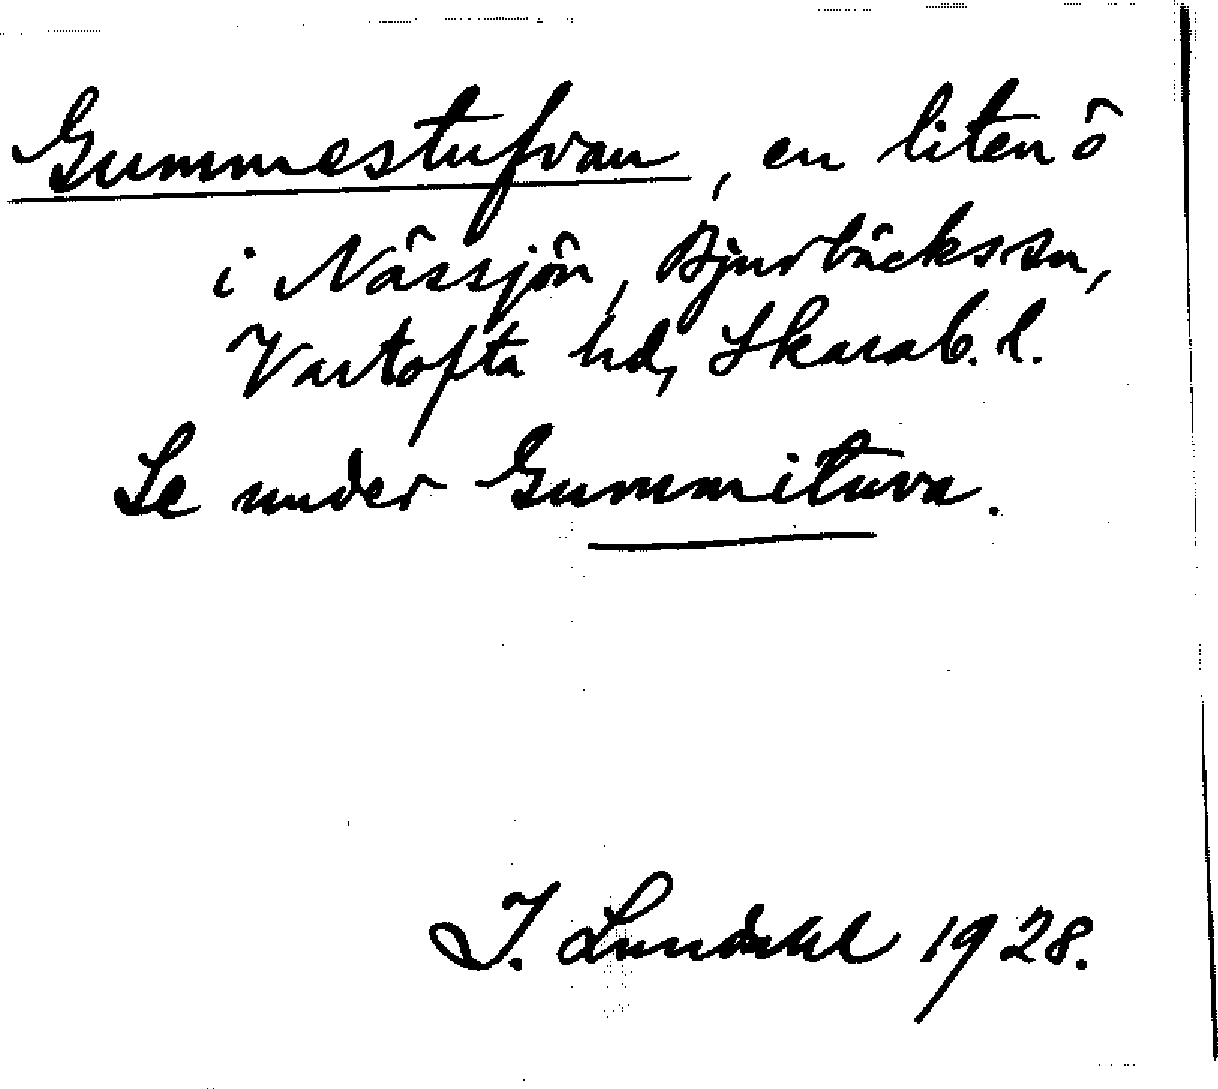 Gummestufvan, en liten ö
i Nässjön, Bjurbäckssn,
Vartofta hd, Skarab. l.
Se under Gummituva.
I. Lundahl 1928.